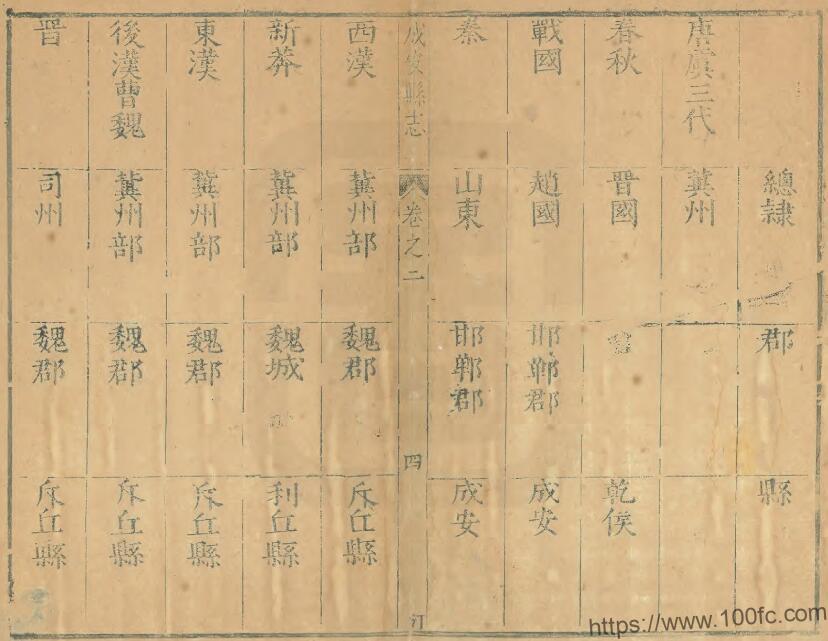 總隸 郡 縣
唐虞三代 冀州
春秋 晉國 乾侯
戰國 趙國 邯鄲郡 成安
秦 山東 邯鄲郡 成安
成安縣志 卷之二 四
西漢 冀州部 魏郡 斥丘縣
新莽 冀州部 魏城 利丘縣
東漢 冀州部 魏郡 斥丘縣
後漢曹魏 冀州部 魏郡 斥丘縣
晉 司州 魏郡 斥丘縣
https://www.100fc.com